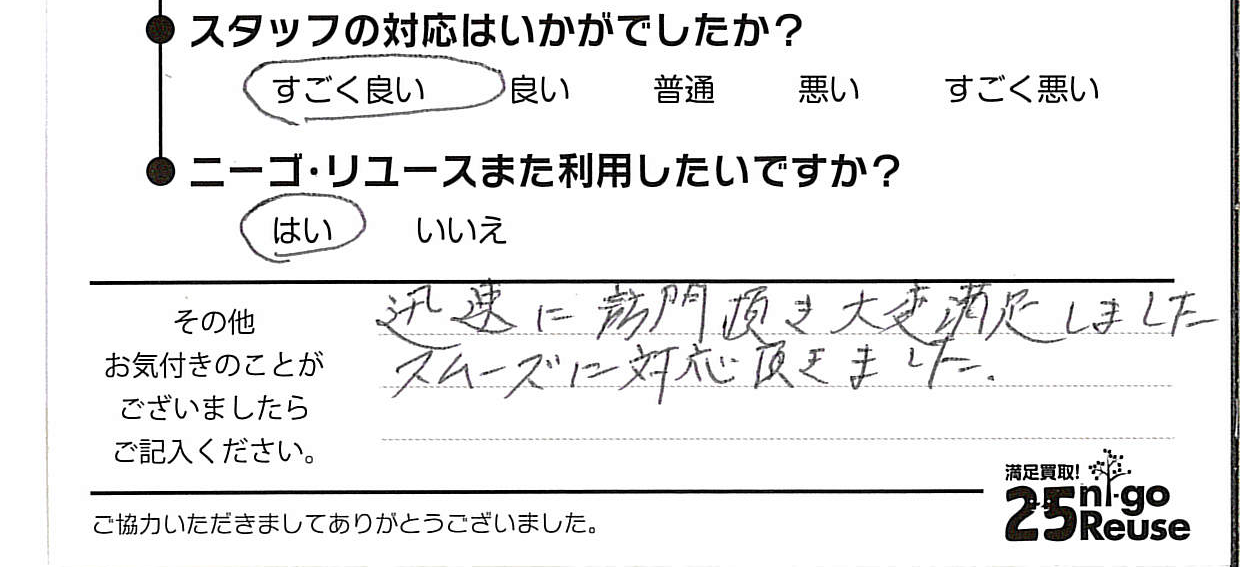 スタッフの対応はいかがでしたか?
すごく良い 良い 普通 悪い すごく悪い
ニーゴ・リユースまた利用したいですか?
はい いいえ
その他
お気付きのことが
ございましたら
ご記入ください。
迅速に訪問頂き大変満足しました
スムーズに対応頂きました.
満足買取!
25 ni-go
Reuse
ご協力いただきましてありがとうございました。